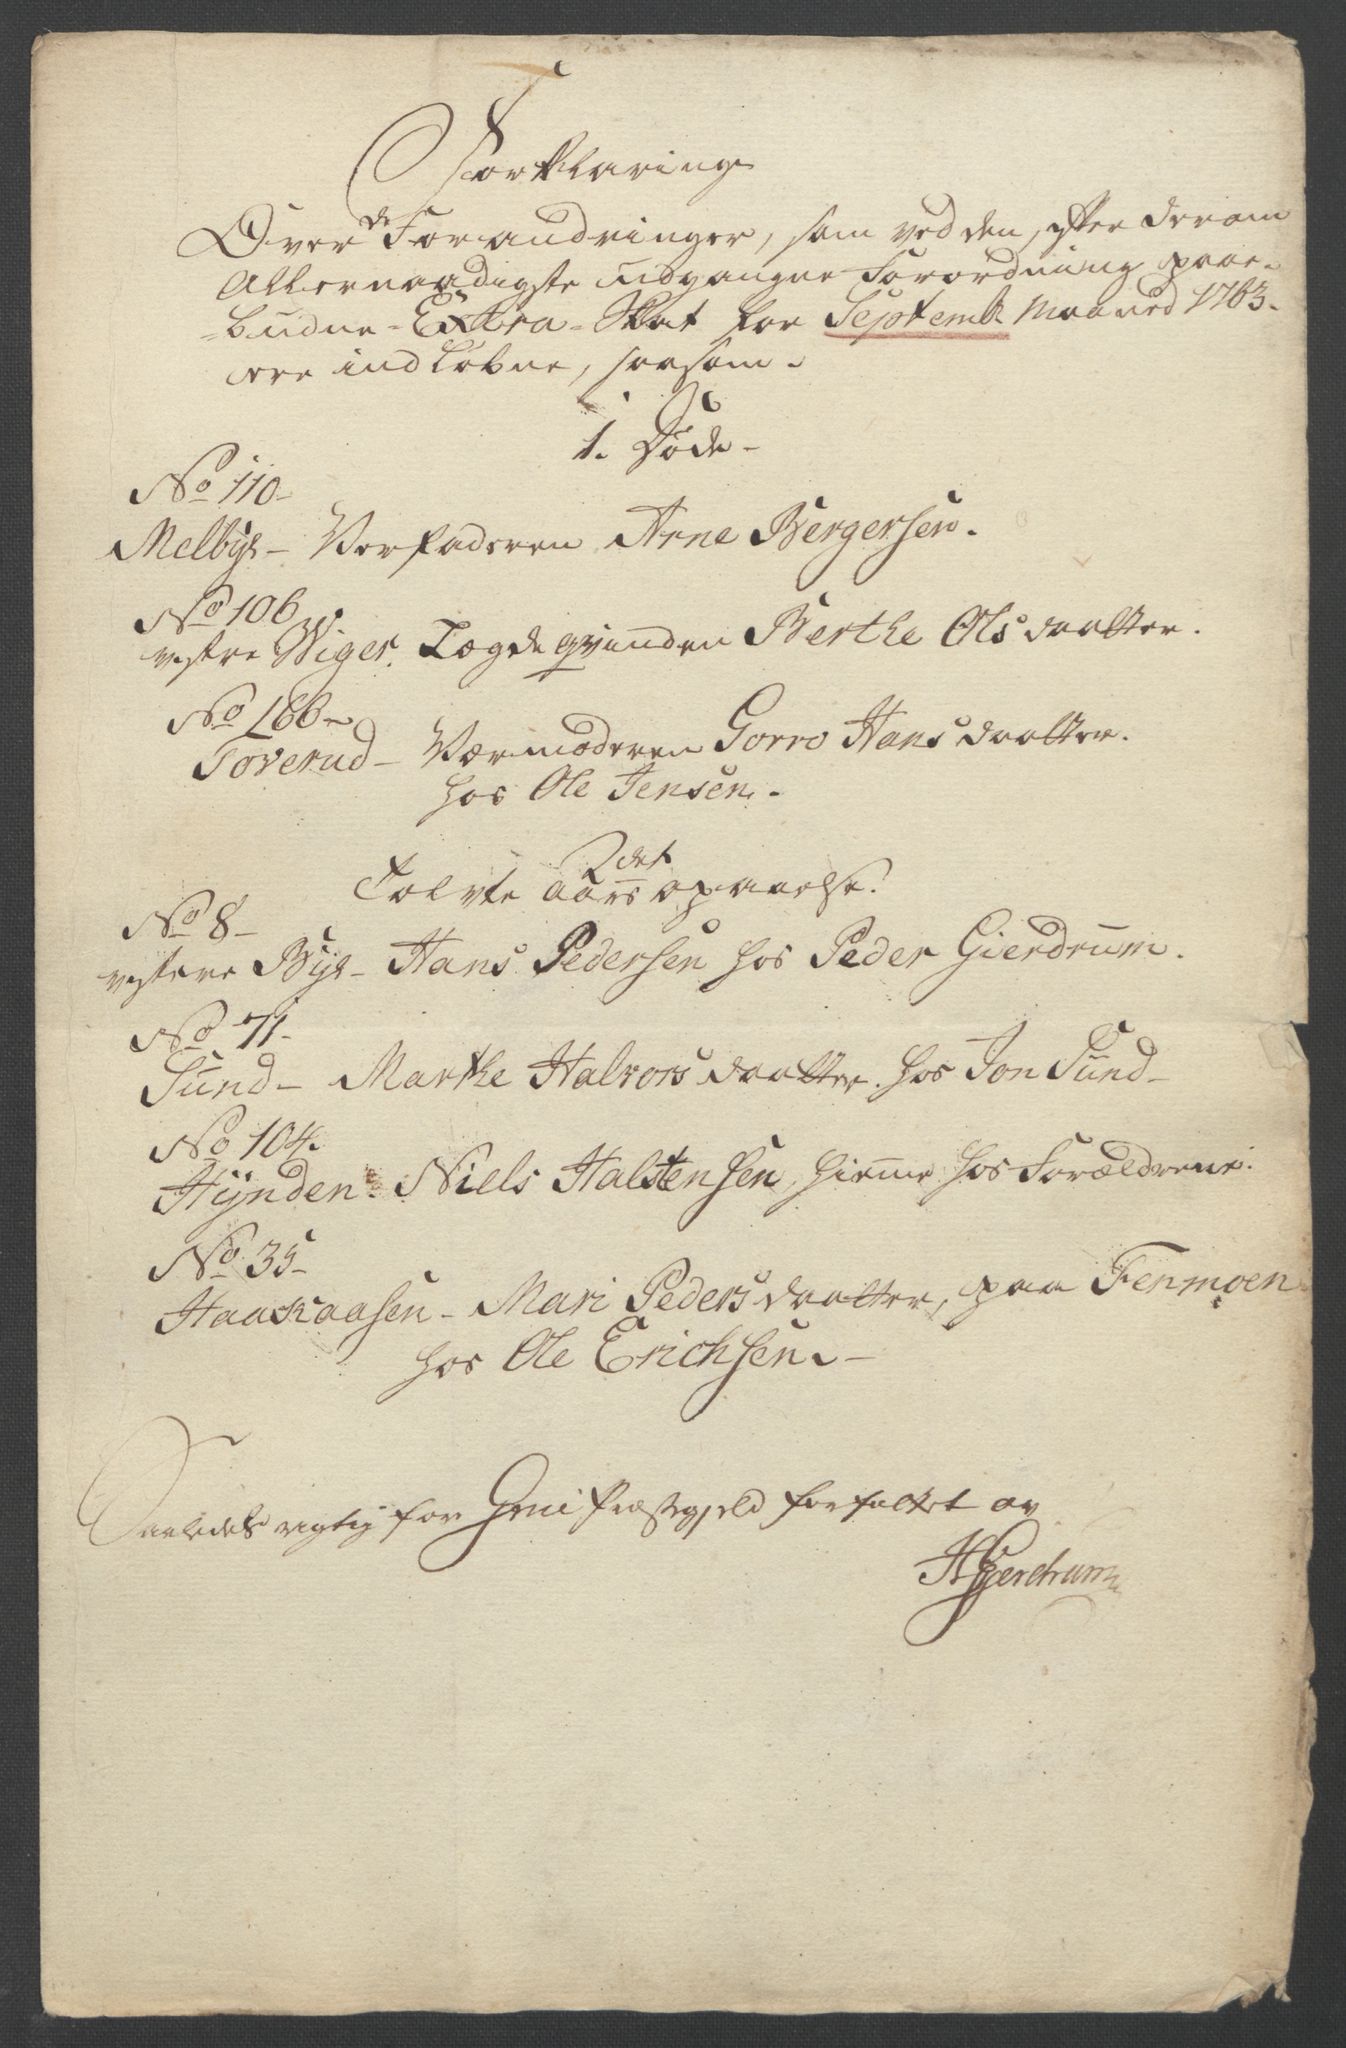 Forklaring
Over de Forandringer, som ved den, efter derom
Allernaadigste udgangne Forordning paae-
budne Extra-Skat for Septemb: Maaned 1763.
ere indløbne, saasom.
1. Døde
No 110
Melbye - Verfaderen Arne Bergersen.
No 106
vestre Wiger. Lægdeqvinden Berthe Olsdaatter.
No 166
Toverud - Værmoderen Gorro Hansdaatter.
hos Ole Jensen.
2det
Tolvte aars opnaaelse.
No 8
vestere Bye - Hans Pedersen hos Peder Gierdrum.
No 71
Sund - Marthe Halvorsdaatter. hos Jon Sund
No 104.
Hynden. Niels Halstensen, hieme hos Forældrene.
No 35
Haakaasen - Mari Pedersdaatter, paa Fenmoen
hos Ole Erichsen.
Saaledes rigtig for Grue Præstegjeld forfattet av
HGierdrum